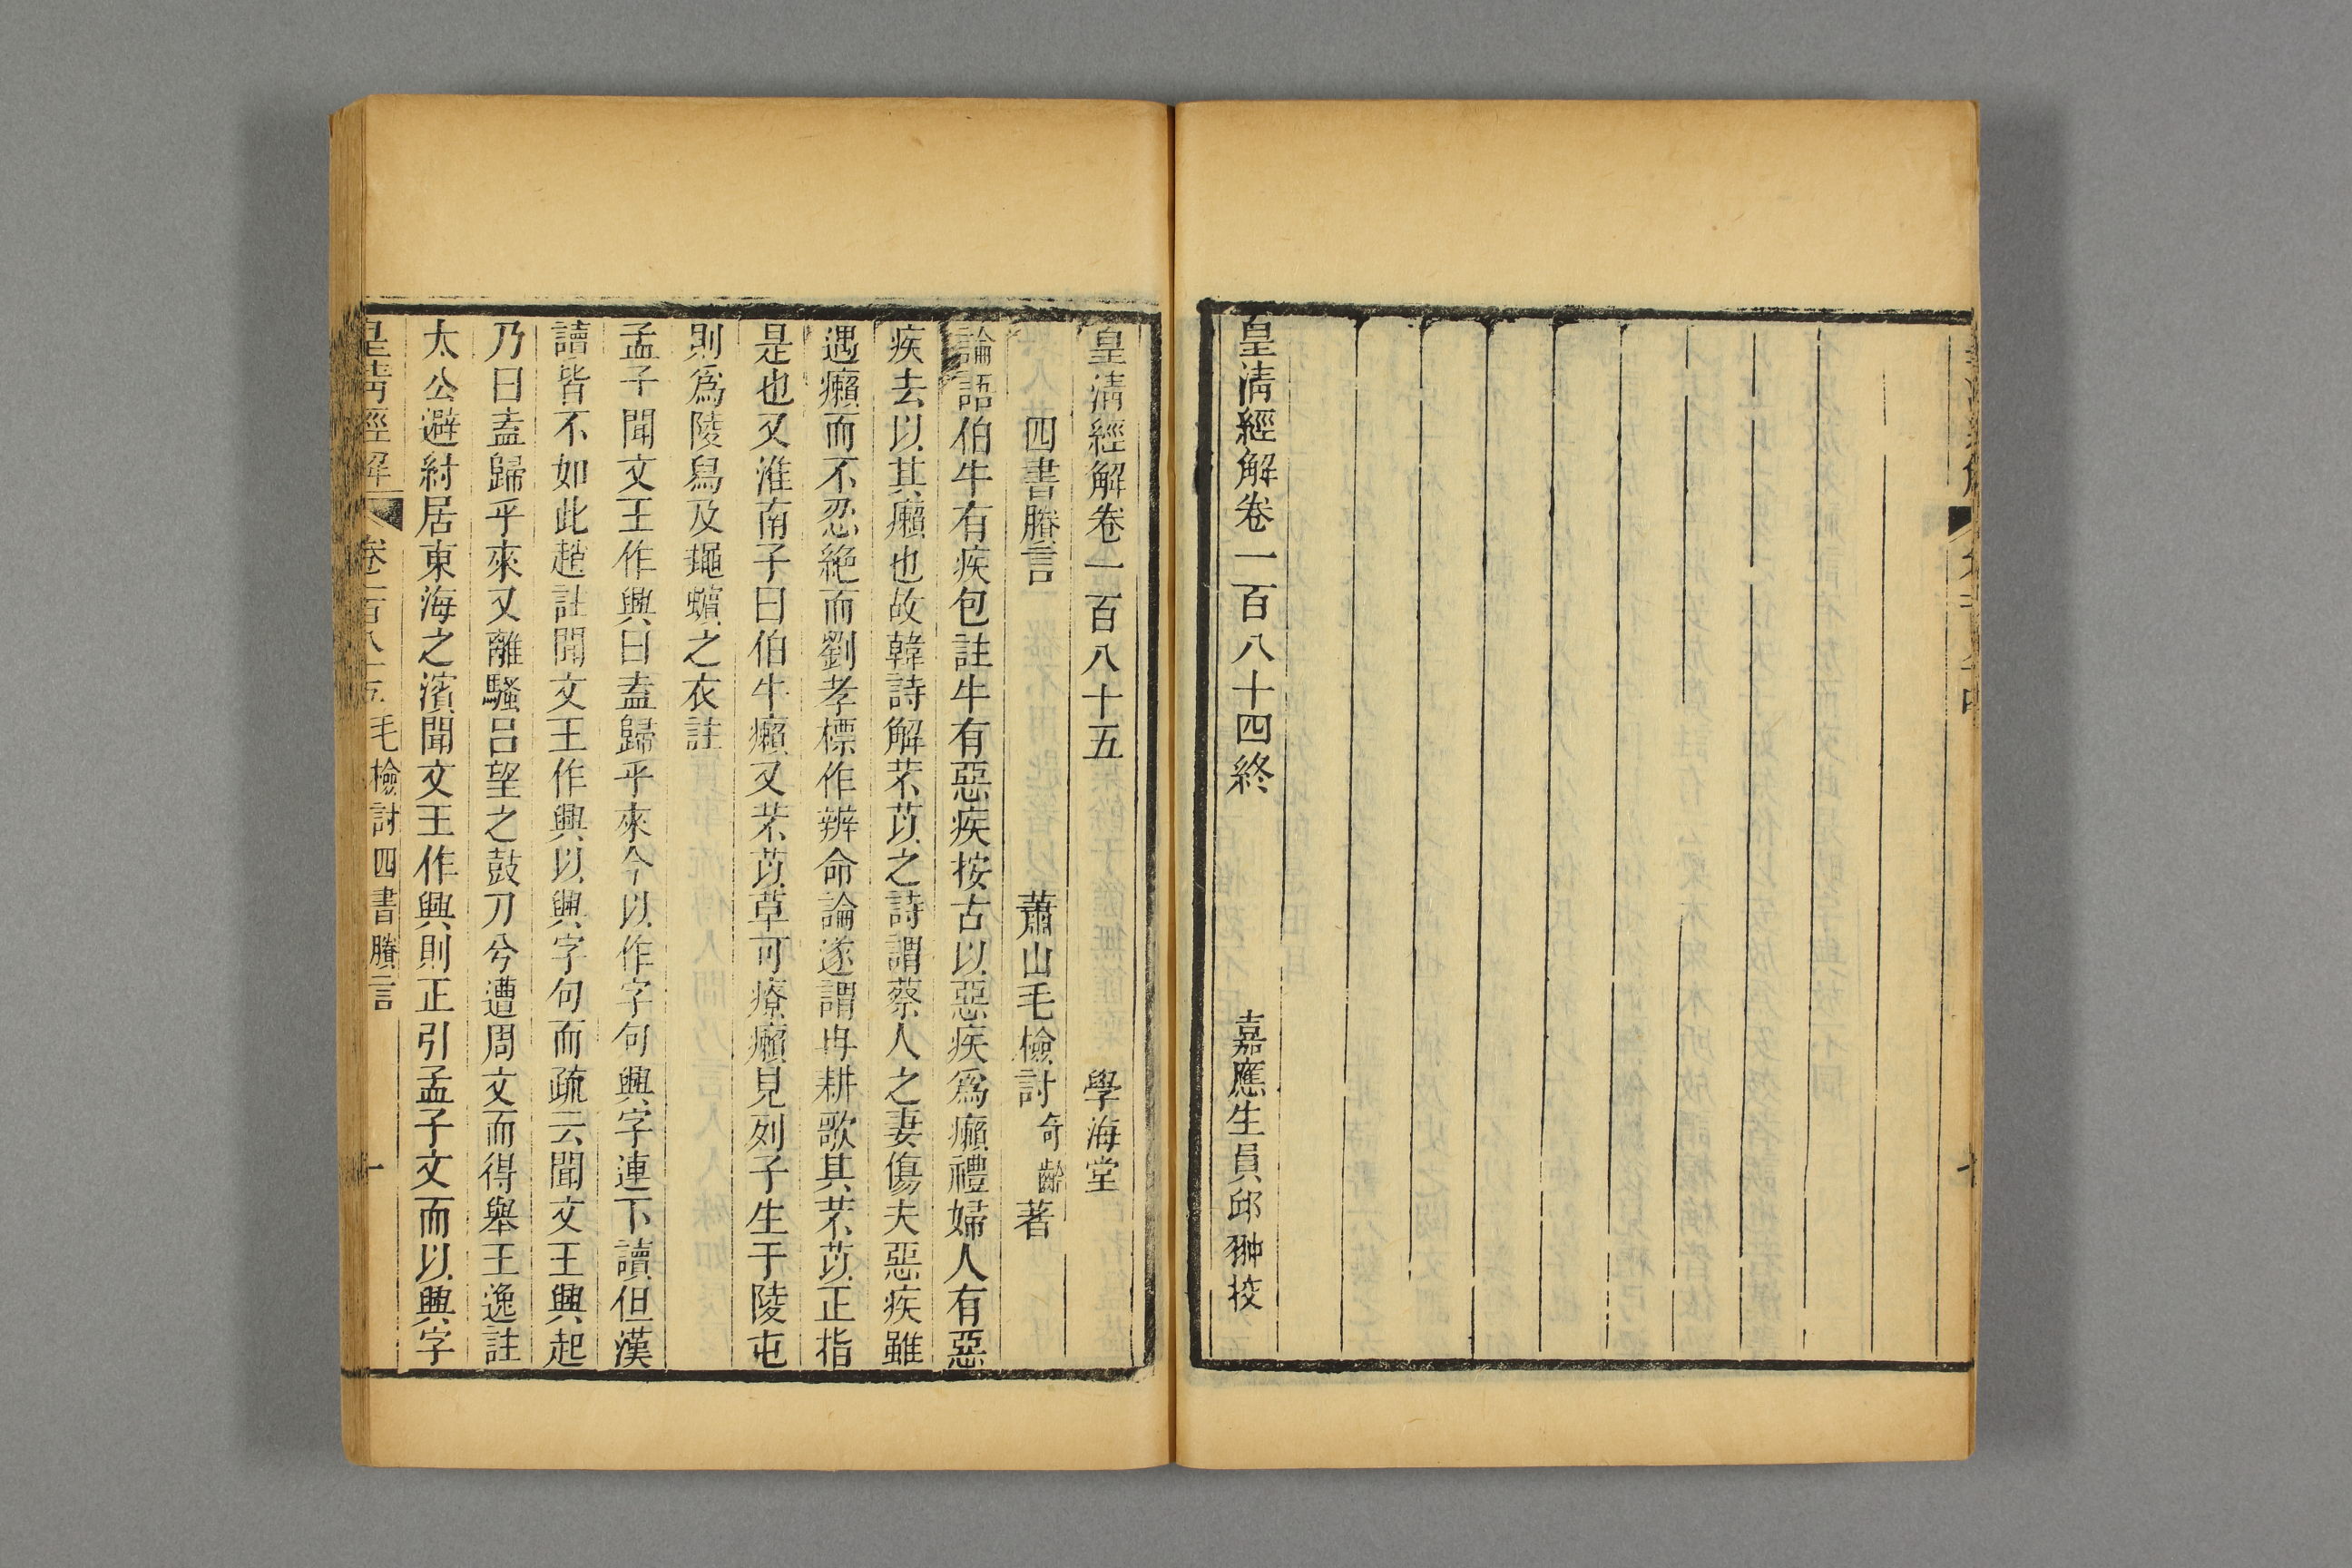 皇清經解卷一百八十四終 嘉應生員邱翀校
皇清經解卷一百八十五 學海堂
四書賸言 蕭山毛檢討奇齡著
論語伯牛有疾包註牛有惡疾按古以惡疾爲癩禮婦人有惡
疾去以其癩也故韓詩解芣苡之詩謂蔡人之妻傷夫惡疾雖
遇癩而不忍絶而劉孝標作辨命論遂謂冉耕歌其芣苡正指
是也又淮南子曰伯牛癩又芣苡草可療癩見列子生于陵屯
則爲陵舄及䵷蠙之衣註
孟子聞文王作興曰盍歸乎來今以作字句興字連下讀但漢
讀皆不如此趙註聞文王作興以興字句而疏云聞文王興起
乃曰盍歸乎來又離騷呂望之鼓刀兮遭周文而得舉王逸註
太公避紂居東海之濱聞文王作興則正引孟子文而以興字
皇清經解 卷一百八十五 毛檢討四書賸言 一